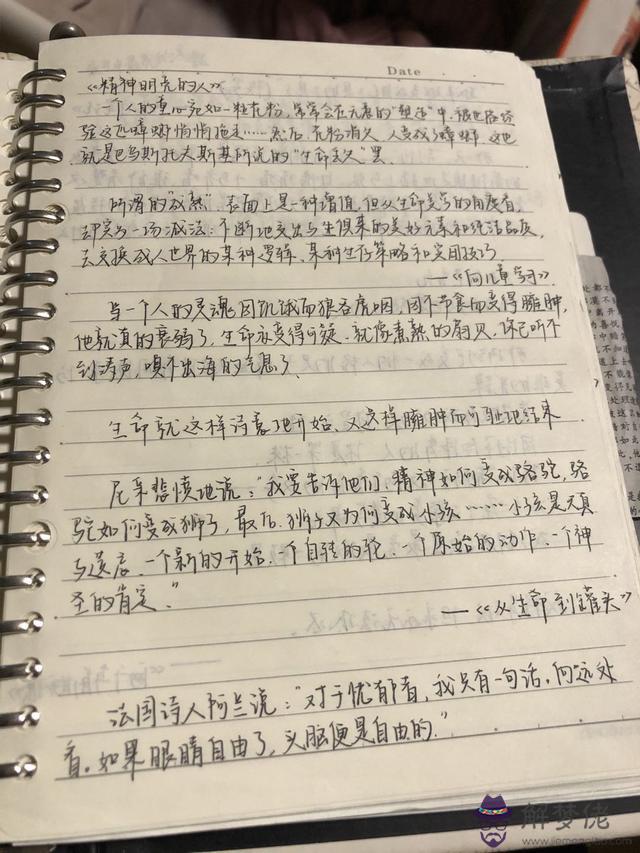 Date
《精神明亮的人》
一个人的童心宛如一粒花粉，常常会在无意的"塑造"中，被世故经
验这匹蟑螂悄悄拖走……然后，花粉消失，人变成了蟑螂。这也
就是巴乌斯托夫斯基所说的"生命丢失"罢。
所谓的"成熟"，表面上是一种增值，但从生命美学的角度看，
却实为一场减法：不断地交出与生俱来的美好元素和纯洁品质，
去交换成人世界的某种逻辑、某种生存策略和实用技巧。
——《向儿童学习》
当一个人的灵魂因饥饿而狼吞虎咽，因不节食而变得臃肿，
他就真的衰弱了，生命亦变得可疑，就像煮熟的扇贝，你已听不
到涛声，嗅不出海的气息了。
生命就这样诗意地开始，又这样臃肿而可耻地结束
尼采悲愤地说："我要告诉他们，精神如何变成骆驼，骆
驼如何变成狮子，最后，狮子又为何变成小孩……小孩是天真
与遗忘，一个新的开始，一个自转的轮，一个原始的动作，一个神
圣的肯定。"
——《从生命到罐头》
法国诗人阿兰说："对于忧郁者，我只有一句话，向远处
看。如果眼睛自由了，头脑便是自由的。"
解梦佬